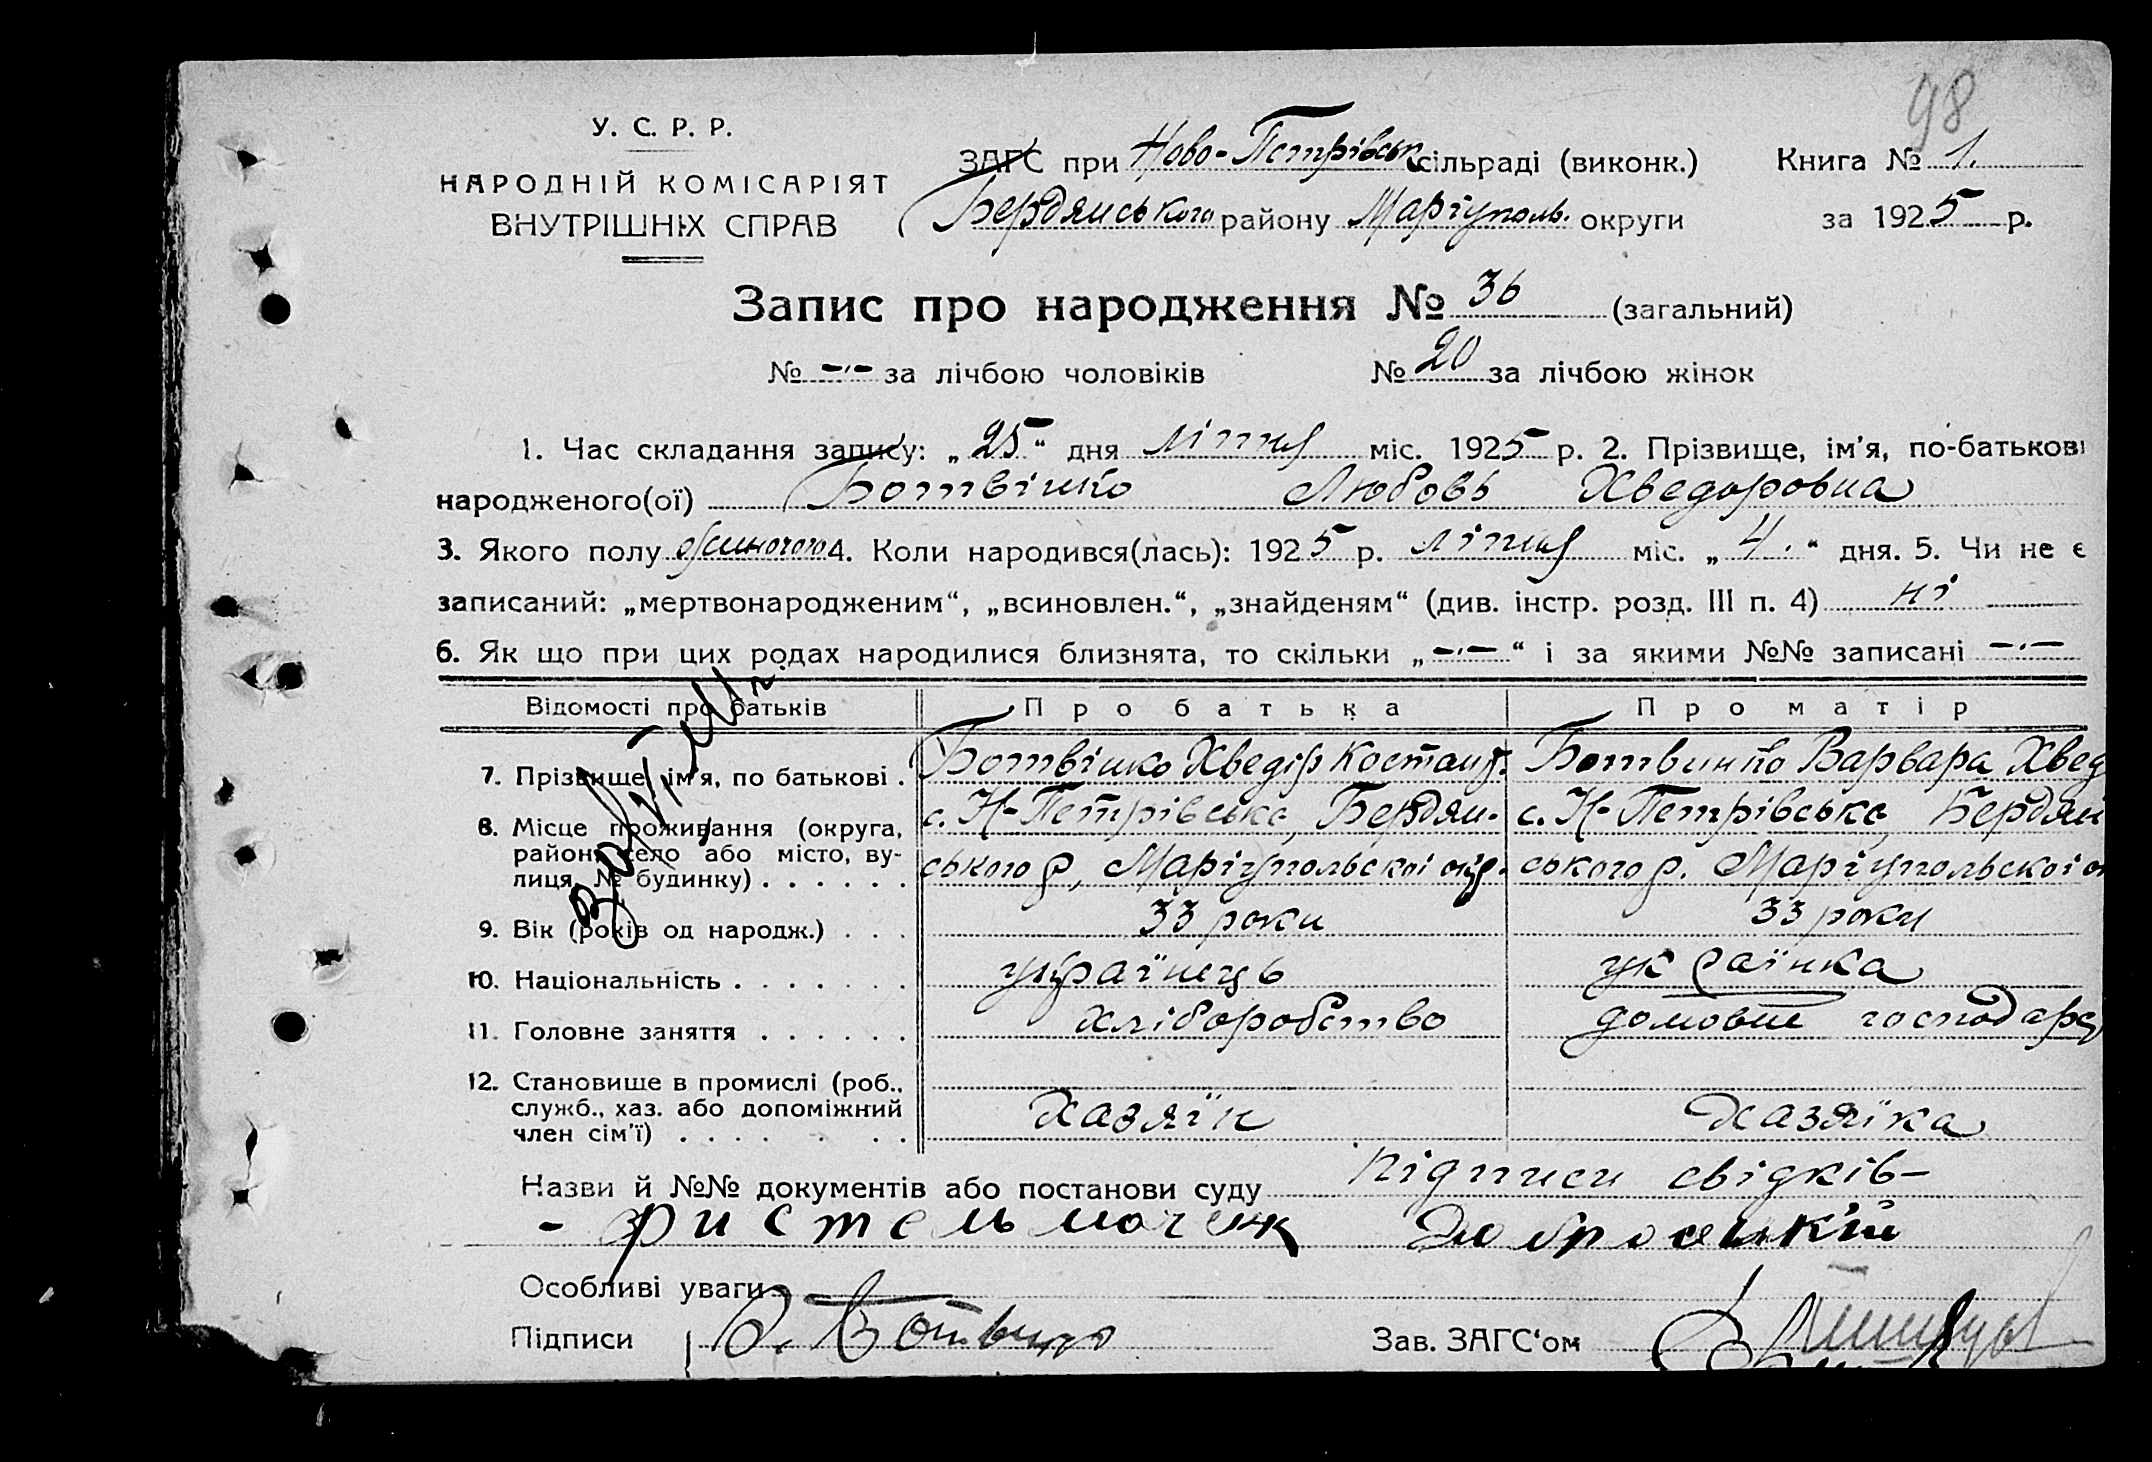 98
У. С. Р. Р.
НАРОДНІЙ КОМІСАРІЯТ
ВНУТРІШНІХ СПРАВ
ЗАГС при Ново-Петрівськ сільраді (виконк.) Книга № 1.
Бердянського району Маріуполь. округи за 1925 р.
Запис про народження № 36 (загальний)
№ -·- за лічбою чоловіків № 20 за лічбою жінок
1. Час складання запису: „25“ дня ліпня міс. 1925 р. 2. Прізвище, ім'я, по-батькові
народженого(ої) Ботвінко Любовь Хведоровна
3. Якого полу жиночого 4. Коли народився(лась): 1925 р. ліпня міс. „4.“ дня. 5. Чи не є
записаний: „мертвонародженим“, „всиновлен.“, „знайденям“ (див. інстр. розд. III п. 4) ні
6. Як що при цих родах народилися близнята, то скільки „-·-“ і за якими №№ записані -·-
Відомості про батьків Про батька Про матір
7. Прізвище, ім'я, по батькові . Ботвінко Хведір Костант. Ботвинко Варвара Хвед
8. Місце проживання (округа, район, село або місто, вулиця, № будинку) . . . . . .
с. Н-Петрівська, Бердян- с. Н-Петрівська, Бердян
ського р, Маріупольскоі окр. ського р. Маріупольскоі о
9. Вік (років од народж.) . . . 33 роки 33 роки
10. Національність . . . . . . . українець українка
11. Головне заняття . . . . . . хліборобство домовне господарс
12. Становище в промислі (роб., служб., хаз. або допоміжний член сім'ї) . . . . . . .
хазяїн хазяїка
Назви й №№ документів або постанови суду підписи свідків-
Особливі уваги
Підписи
Зав. ЗАГС‘ом